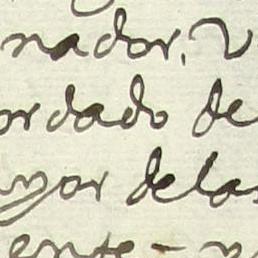 nador, V
ordado de
yor delas
ente -